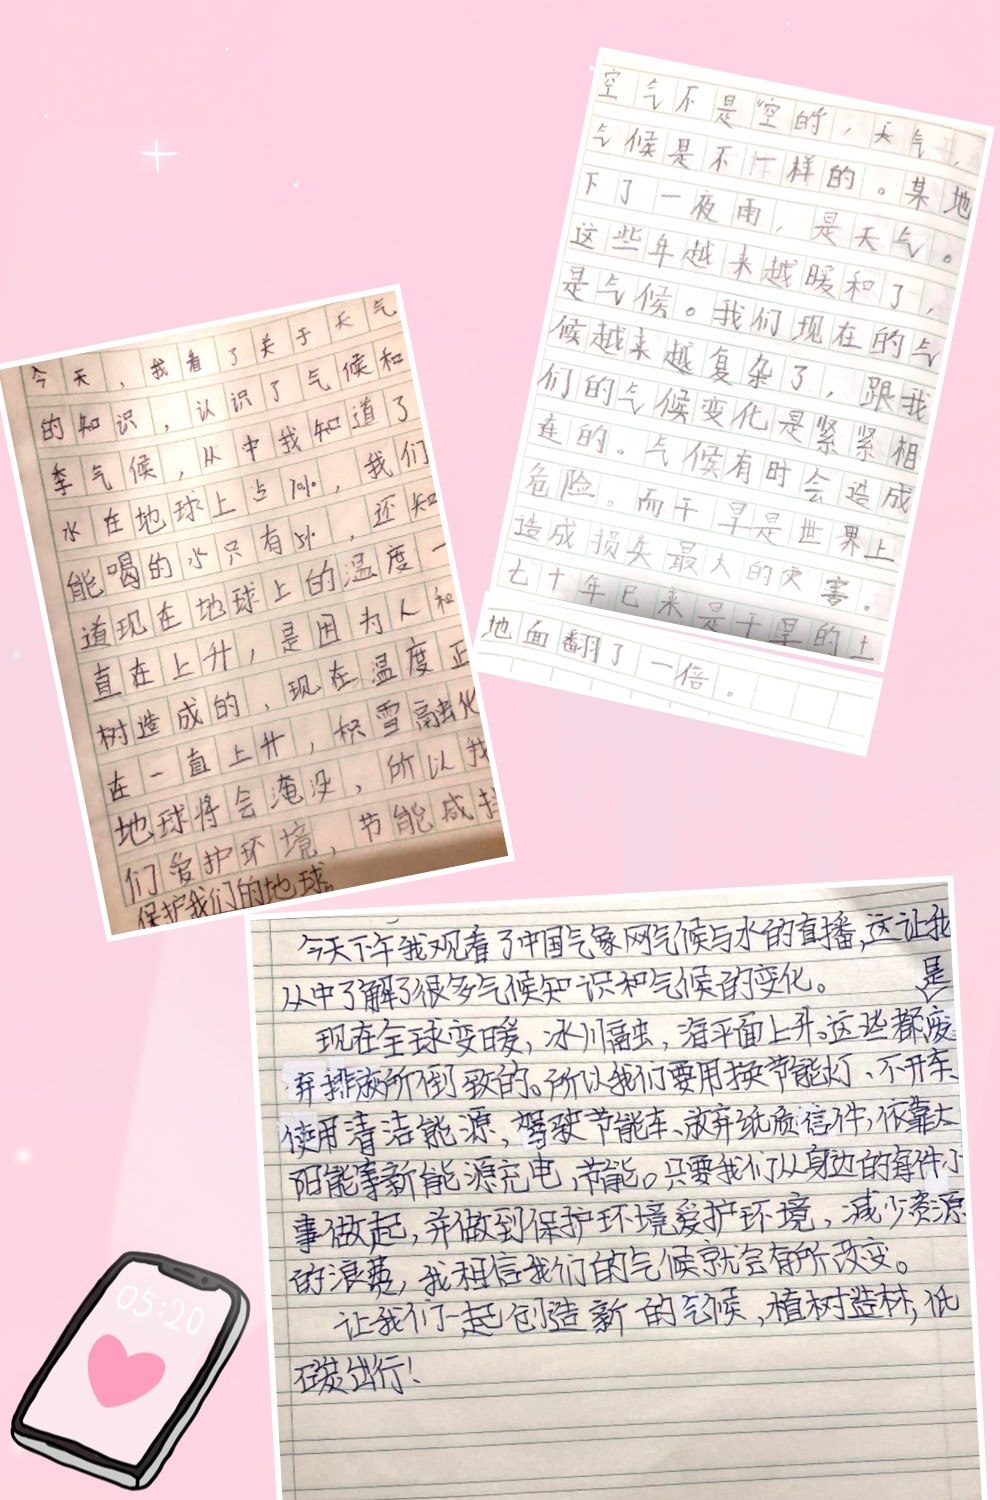 空气不是空的，天气，
气候是不一样的。某地
下了一夜雨，是天气。
这些年越来越暖和了，
是气候。我们现在的气
候越来越复杂了，跟我
们的气候变化是紧紧相
连的。气候有时会造成
危险。而干旱是世界上
造成损失最大的灾害。
七十年已来是干旱的土
地面翻了一倍。
今天，我看了关于天气
的知识，认识了气候和
季气候，从中我知道了
水在地球上占70%，我们
能喝的水只有5%，还知
道现在地球上的温度一
直在上升，是因为人和
树造成的，现在温度正
在一直上升，积雪融化
地球将会淹没，所以我
们爱护环境，节能减排
保护我们的地球。
今天下午我观看了中国气象网气候与水的直播，这让我
从中了解了很多气候知识和气候的变化。
现在全球变暖，冰川融虫，海平面上升。这些都是废
弃排放所倒致的。所以我们要用换节能灯、不开车
使用清洁能源，驾驶节能车、放弃纸质信件，依靠太
阳能等新能源充电，节能。只要我们从身边的每件小
事做起，并做到保护环境爱护环境，减少资源
的浪费，我相信我们的气候就会有所改变。
让我们一起创造新的气候，植树造林，低
碳出行！
05:20